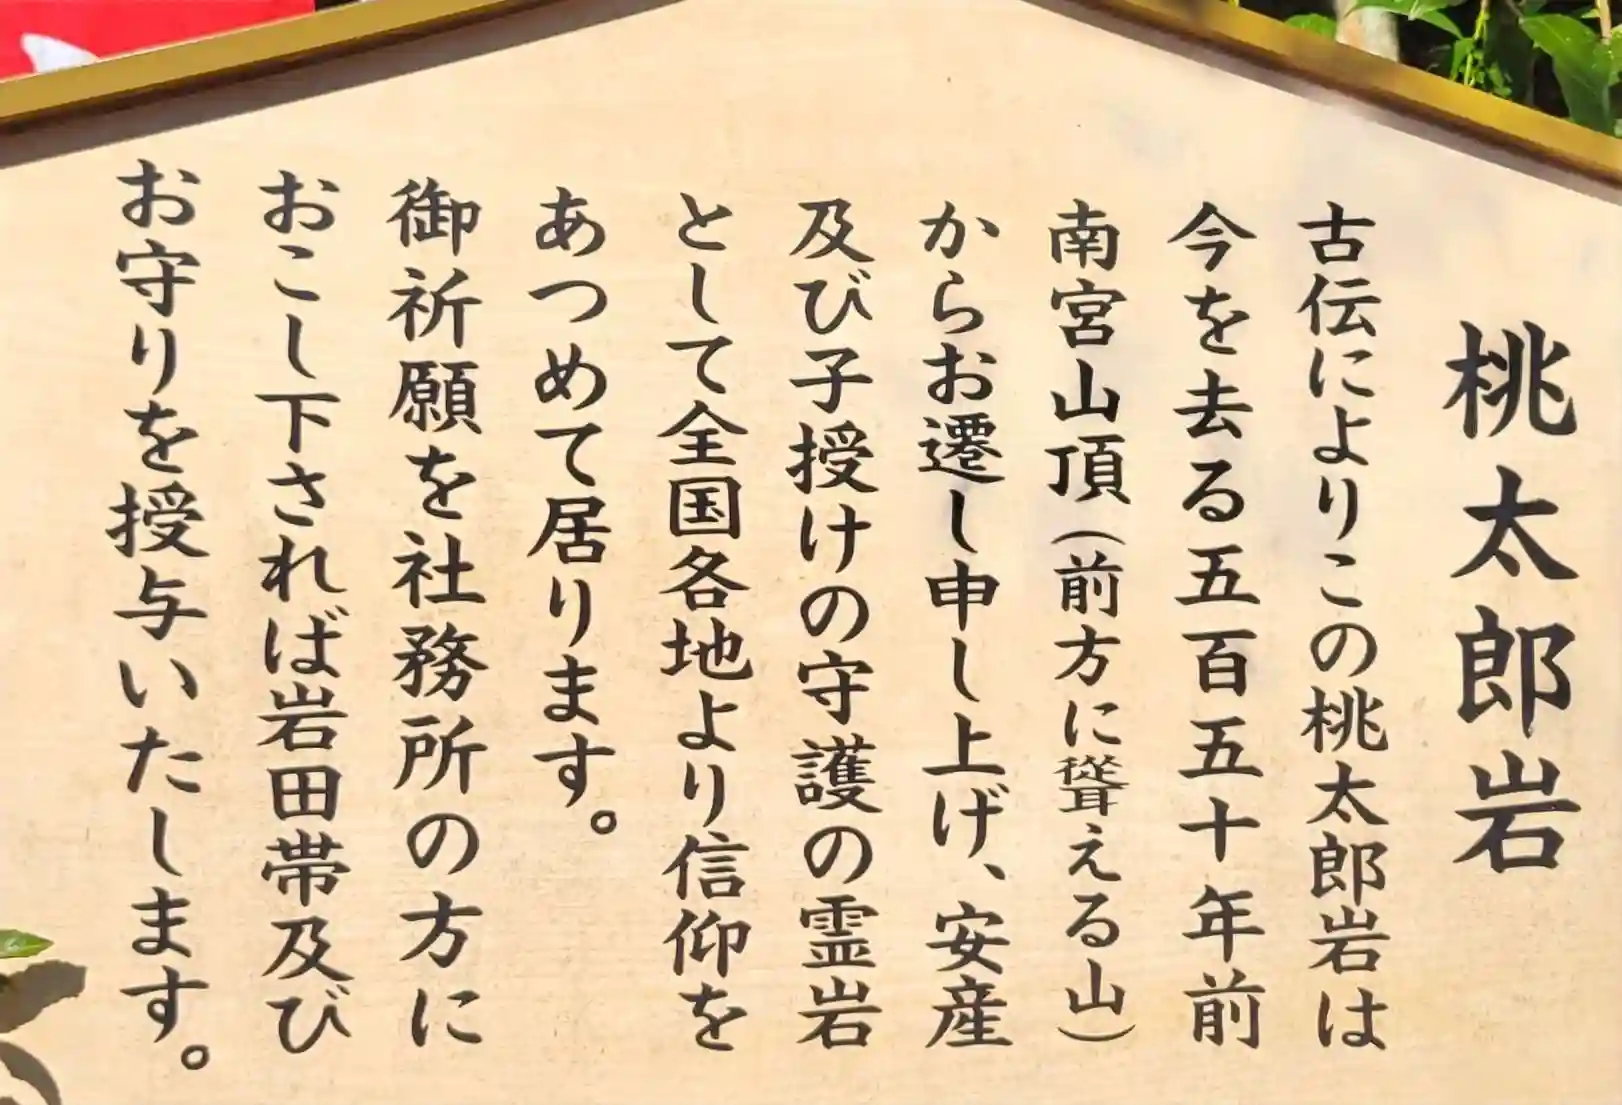 桃太郎岩
古伝によりこの桃太郎岩は
今を去る五百五十年前
南宮山頂(前方に聳える山)
からお遷し申し上げ、安産
及び子授けの守護の霊岩
として全国各地より信仰を
あつめて居ります。
御祈願を社務所の方に
おこし下されば岩田帯及び
お守りを授与いたします。